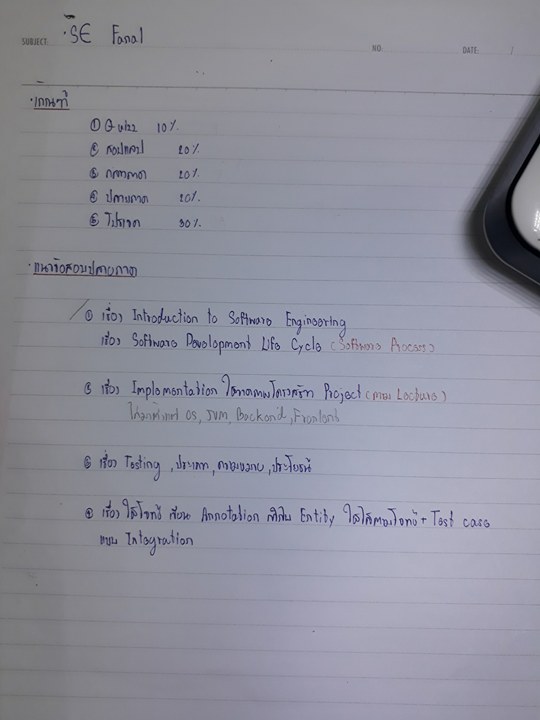 SUBJECT:
·SE Fanal
NO:
DATE: /
·เกณฑ์
① Quizz 10%
② สอบแลป 20%
③ กลางภาค 20%
④ ปลายภาค 20%
⑤ โปรเจค 30%
·แนวข้อสอบปลายภาค
① เรื่อง Introduction to Software Engineering
เรื่อง Software Development Life Cycle (Software Process)
② เรื่อง Implementation Project (ตาม Lecture)
OS, JVM, Backend, Frontend
③ เรื่อง Testing, ประเภท, ความหมาย, ประโยชน์
④ เรื่อง ให้โจทย์ เขียน Annotation Entity ให้ได้ตามโจทย์ + Test case
แบบ Integration